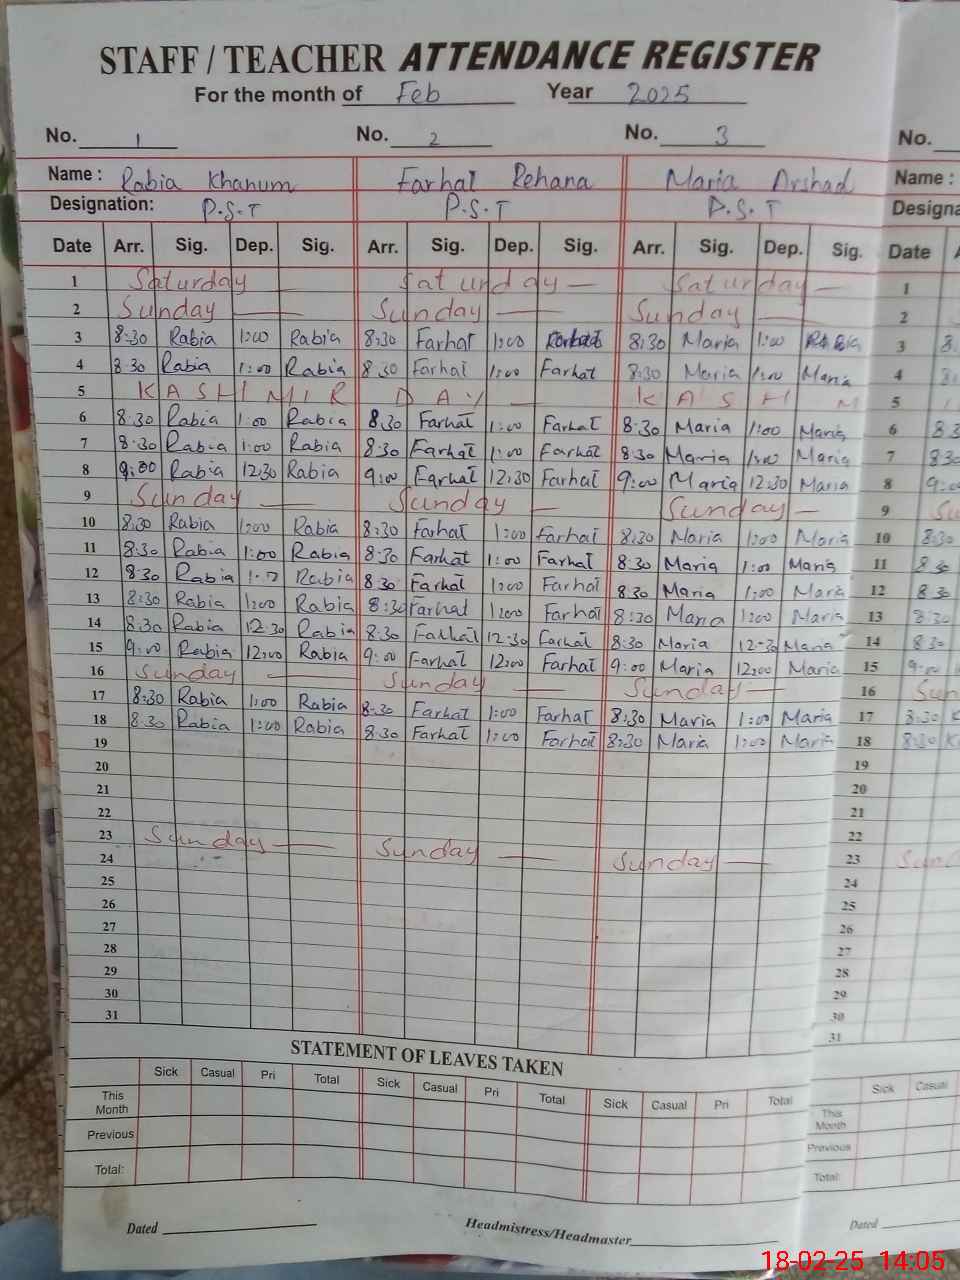 STAFF / TEACHER ATTENDANCE REGISTER
For the month of Feb Year 2025
No. 1 No. 2 No. 3 No.
Name : Rabia Khanum Farhat Rehana Maria Arshad Name :
Designation: P.S.T P.S.T P.S.T
Date Arr. Sig. Dep. Sig. Arr. Sig. Dep. Sig. Arr. Sig. Dep. Sig. Date
1 Saturday — Saturday — Saturday — 1
2 Sunday — Sunday — Sunday — 2
3 8:30 Rabia 1:00 Rabia 8:30 Farhat 1:00 8:30 Maria 1:00 3
4 8 30 Rabia 1:00 Rabia 8 30 Farhat 1:00 Farhat 8:30 Maria 1:00 Maria 4
5 KASHMIR DAY — KASH M 5
6 8:30 Rabia 1:00 Rabia 8:30 Farhat 1:00 Farhat 8:30 Maria 1:00 Maria 6
7 8:30 Rabia 1:00 Rabia 8:30 Farhat 1:00 Farhat 8:30 Maria 1:00 Maria 7
8 9:00 Rabia 12:30 Rabia 9:00 Farhat 12:30 Farhat 9:00 Maria 12:30 Maria 8
9 Sunday — Sunday — Sunday — 9
10 8:30 Rabia 1:00 Rabia 8:30 Farhat 1:00 Farhat 8:30 Maria 1:00 Maria 10 8:30
11 8:30 Rabia 1:00 Rabia 8:30 Farhat 1:00 Farhat 8:30 Maria 1:00 Maria 11 8 30
12 8:30 Rabia Rabia 8:30 Farhat 1:00 Farhat 8:30 Maria 1:00 Maria 12 8 30
13 8:30 Rabia 1:00 Rabia 8:30 Farhat 1:00 Farhat 8:30 Maria 1:00 Maria 13 8:30
14 8:30 Rabia 12:30 Rabia 8:30 Farhat 12:30 Farhat 8:30 Maria 12-30 Maria 14 8:30
15 9:00 Rabia 12:00 Rabia 9:00 Farhat 12:00 Farhat 9:00 Maria 12:00 Maria 15 9:00
16 Sunday — Sunday — Sunday — 16
17 8:30 Rabia 1:00 Rabia 8:30 Farhat 1:00 Farhat 8:30 Maria 1:00 Maria 17 8:30
18 8:30 Rabia 1:00 Rabia 8:30 Farhat 1:00 Farhat 8:30 Maria 1:00 Maria 18 8:30
19 19
20 20
21 21
22 22
23 Sunday — Sunday — Sunday — 23
24 24
25 25
26 26
27 27
28 28
29 29
30 30
31 31
STATEMENT OF LEAVES TAKEN
Sick Casual Pri Total Sick Casual Pri Total Sick Casual Pri Total Sick Casual
This Month This Month
Previous Previous
Total: Total:
Dated Headmistress/Headmaster Dated
18-02-25 14:05